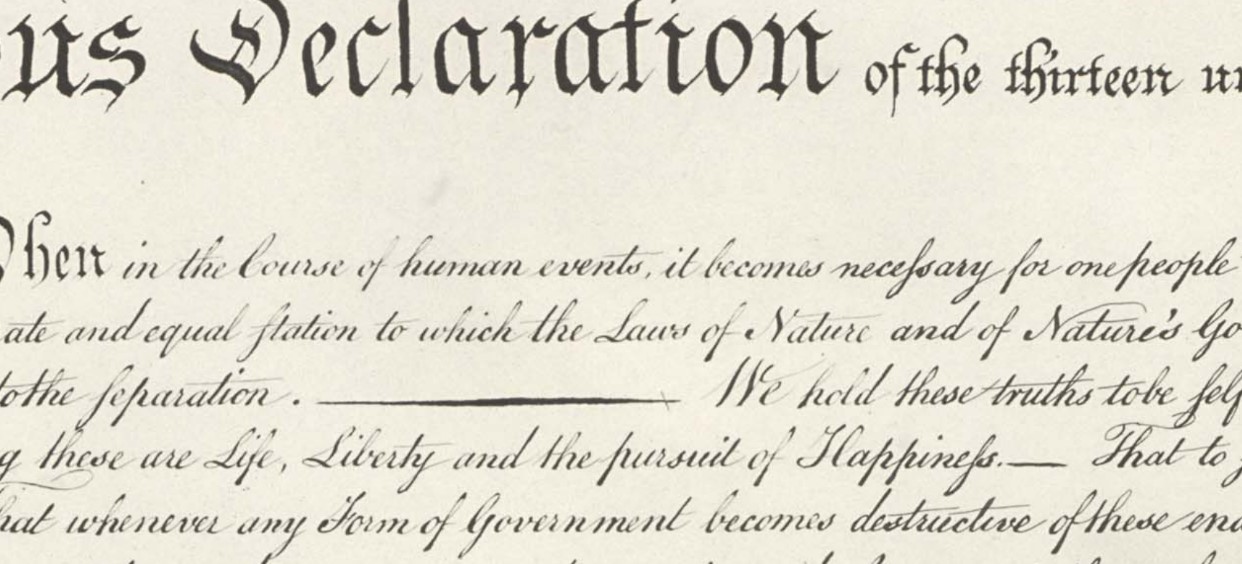 us Declaration of the thirteen un
hen in the Course of human events, it becomes neceſsary for one people
ate and equal ſtation to which the Laws of Nature and of Nature's Go
to the ſeparation. ——— We hold these truths to be ſelf
g these are Life, Liberty and the pursuit of Happineſs.— That to
hat whenever any Form of Government becomes destructive of these end